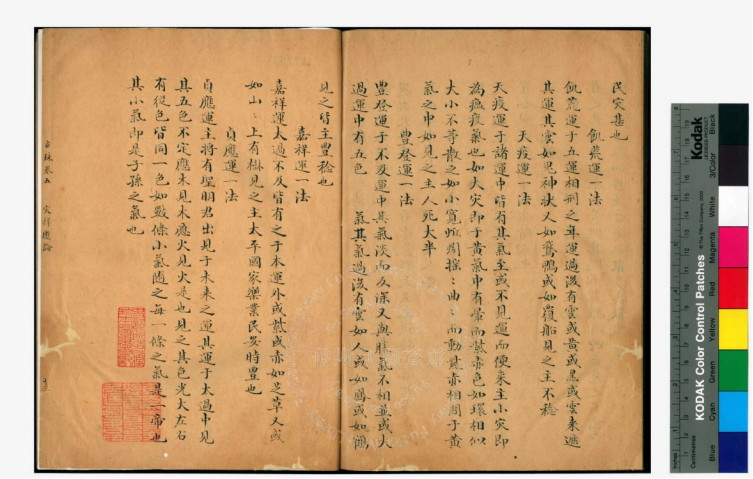 民災甚也
飢荒運一法
飢荒運于五運相刑之年運過後有雲或黃或黑或雲來遮
其運其雲如鬼神狀又如鵞鴨或如覆船見之主不稔
天疫運一法
天疫運于諸運中皆有其氣至或不見運而便來主小災即
為瘟疫氣也如大災即于黃氣中有暈而紫赤色如環相似
大小不等散之如小寬慢周搖:曲:而動其赤相周于黃
氣之中如見之主人死大半
豐登運一法
豐登運于不及運中其氣淡而及深又與勝氣不相並或大
過運中有五色 氣其氣過後有雲如人或如鳳或如鶴
見之皆主豐稔也
嘉祥運一法
嘉祥運太過不及皆有之于本運外或紫或赤如芝草又或
如山:上有樹見之主太平國家樂業民安時豐也
貞應運一法
貞應運主將有聖明君出見于未來之運其運于太過中見
其五色不定應木見木應火見火是也見之其色光大左右
有從色皆同一色如數條小氣隨之每一條之氣是一帝也
其小氣即是子孫之氣也
KODAK Color Control Patches
Kodak
Blue
Cyan
Green
Yellow
Red
Magenta
White
3/Color
Black
Centimetres